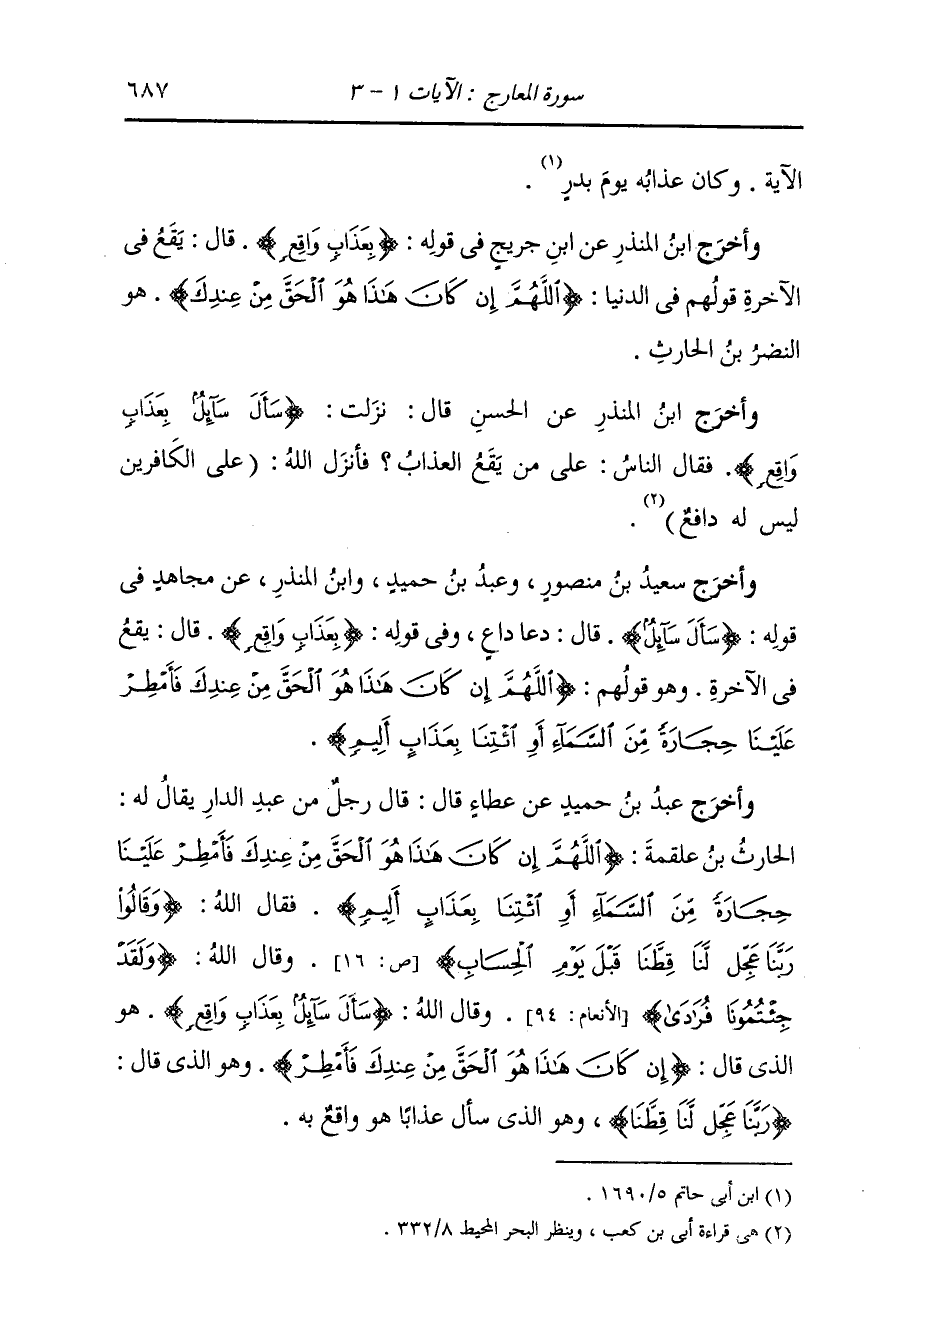 سورة المعارج : الآيات ١ - ٣ ٦٨٧
الآية . وكان عذابُه يومَ بدرٍ(١) .
وأخرَج ابنُ المنذرِ عن ابنِ جريجٍ فى قولِه : ﴿بِعَذَابٍ وَاقِعٍ﴾ . قال : يَقَعُ فى
الآخرةِ قولُهم فى الدنيا : ﴿ٱللَّهُمَّ إِن كَانَ هَٰذَا هُوَ ٱلْحَقَّ مِنْ عِندِكَ﴾ . هو
النضرُ بنُ الحارثِ .
وأخرَج ابنُ المنذرِ عن الحسنِ قال : نزَلت : ﴿سَأَلَ سَآئِلٌۢ بِعَذَابٍ
وَاقِعٍ﴾ . فقال الناسُ : على من يَقَعُ العذابُ ؟ فأنزَل اللهُ : (على الكَافرين
ليس له دافعٌ)(٢) .
وأخرَج سعيدُ بنُ منصورٍ ، وعبدُ بنُ حميدٍ ، وابنُ المنذرِ ، عن مجاهدٍ فى
قولِه : ﴿سَأَلَ سَآئِلٌۢ﴾ . قال : دعا داعٍ ، وفى قولِه : ﴿بِعَذَابٍ وَاقِعٍ﴾ . قال : يقعُ
فى الآخرةِ . وهو قولُهم : ﴿ٱللَّهُمَّ إِن كَانَ هَٰذَا هُوَ ٱلْحَقَّ مِنْ عِندِكَ فَأَمْطِرْ
عَلَيْنَا حِجَارَةً مِّنَ ٱلسَّمَآءِ أَوِ ٱئْتِنَا بِعَذَابٍ أَلِيمٍ﴾ .
وأخرَج عبدُ بنُ حميدٍ عن عطاءٍ قال : قال رجلٌ من عبدِ الدارِ يقالُ له :
الحارثُ بنُ علقمةَ : ﴿ٱللَّهُمَّ إِن كَانَ هَٰذَا هُوَ ٱلْحَقَّ مِنْ عِندِكَ فَأَمْطِرْ عَلَيْنَا
حِجَارَةً مِّنَ ٱلسَّمَآءِ أَوِ ٱئْتِنَا بِعَذَابٍ أَلِيمٍ﴾ . فقال اللهُ : ﴿وَقَالُوا۟
رَبَّنَا عَجِّل لَّنَا قِطَّنَا قَبْلَ يَوْمِ ٱلْحِسَابِ﴾ [ص: ١٦] . وقال اللهُ : ﴿وَلَقَدْ
جِئْتُمُونَا فُرَادَىٰ﴾ [الأنعام: ٩٤] . وقال اللهُ : ﴿سَأَلَ سَآئِلٌۢ بِعَذَابٍ وَاقِعٍ﴾ . هو
الذى قال : ﴿إِن كَانَ هَٰذَا هُوَ ٱلْحَقَّ مِنْ عِندِكَ فَأَمْطِرْ﴾ . وهو الذى قال :
﴿رَبَّنَا عَجِّل لَّنَا قِطَّنَا﴾ ، وهو الذى سأل عذابًا هو واقعٌ به .
(١) ابن أبى حاتم ١٦٩٠/٥ .
(٢) هى قراءة أبى بن كعب ، وينظر البحر المحيط ٣٣٢/٨ .